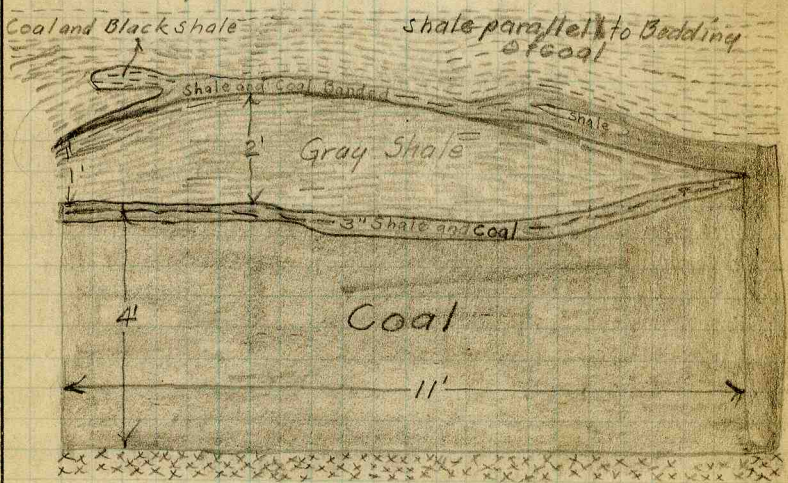 Coal and Black shale
shale parallel to Bedding
of Coal
Shale and Coal Banded
Shale
1'
2'
Gray Shale
3" Shale and Coal
4'
Coal
11'